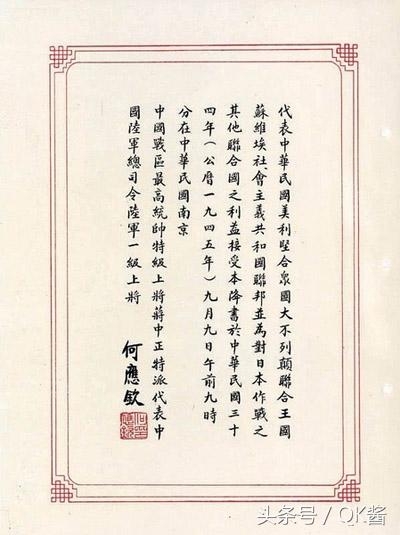 代表中華民國美利堅合衆國大不列顛聯合王國
蘇維埃社會主義共和國聯邦並為對日本作戰之
其他聯合國之利益接受本降書於中華民國三十
四年(公曆一九四五年)九月九日午前九時
分在中華民國南京
中國戰區最高統帥特級上將蔣中正特派代表中
國陸軍總司令陸軍一級上將
何應欽
头条号 / QK酱